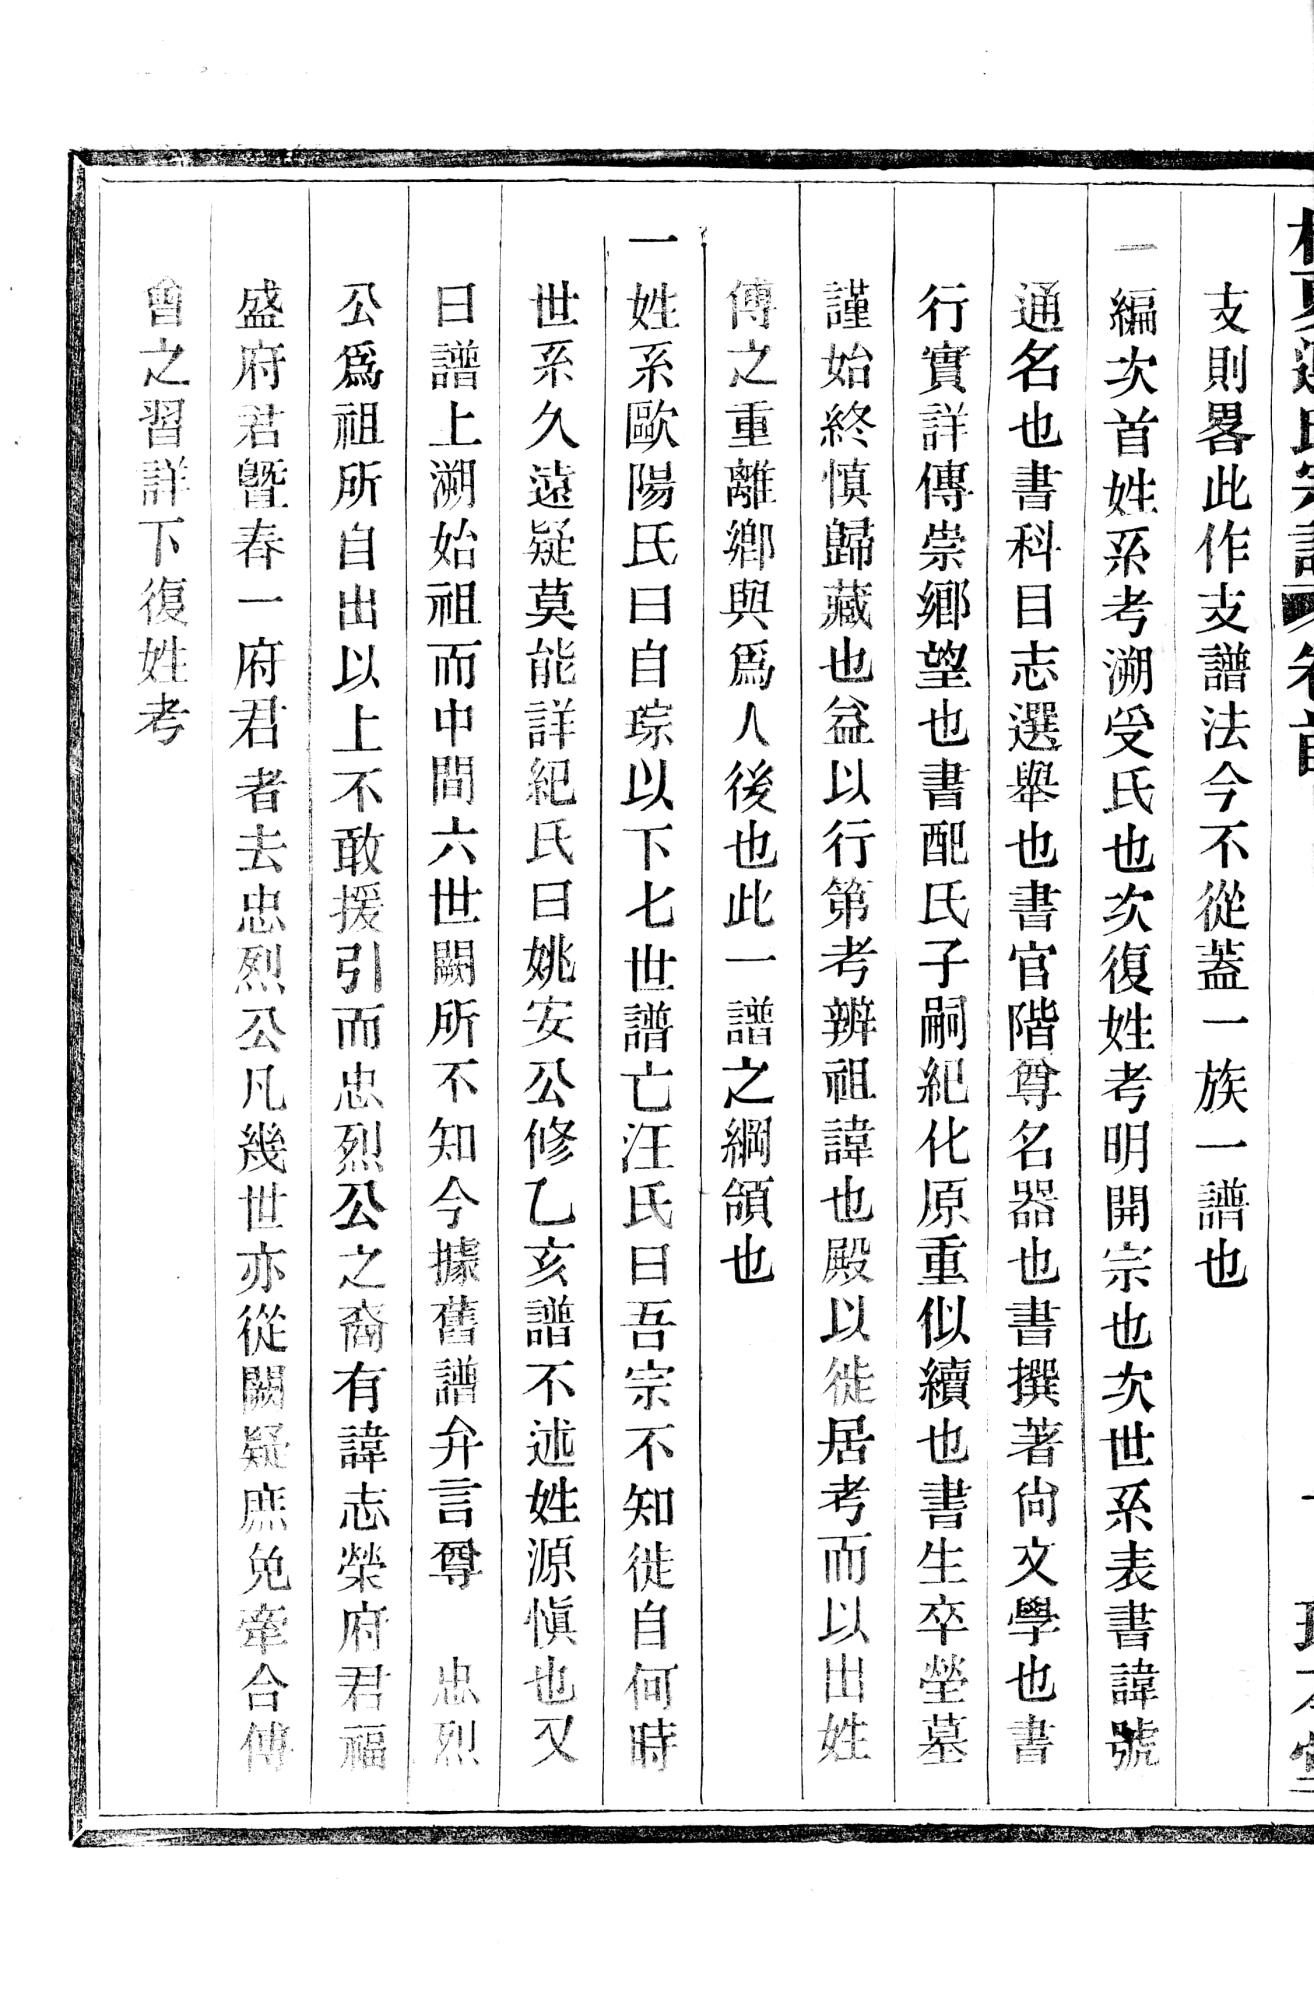 氏宗譜 卷首
支則畧此作支譜法今不從蓋一族一譜也
一編次首姓系考溯受氏也次復姓考明開宗也次世系表書諱號
通名也書科目志選舉也書官階尊名器也書撰著尙文學也書
行實詳傳崇鄉望也書配氏子嗣紀化原重似續也書生卒塋墓
謹始終慎歸藏也益以行第考辨祖諱也殿以徙居考而以出姓
傳之重離鄉與爲人後也此一譜之綱領也
一姓系歐陽氏曰自琮以下七世譜亡汪氏曰吾宗不知徙自何時
世系久遠疑莫能詳紀氏曰姚安公修乙亥譜不述姓源愼也又
曰譜上溯始祖而中間六世闕所不知今據舊譜弁言尊 忠烈
公爲祖所自出以上不敢援引而忠烈公之裔有諱志榮府君福
盛府君曁春一府君者去忠烈公凡幾世亦從闕疑庶免牽合傅
會之習詳下復姓考